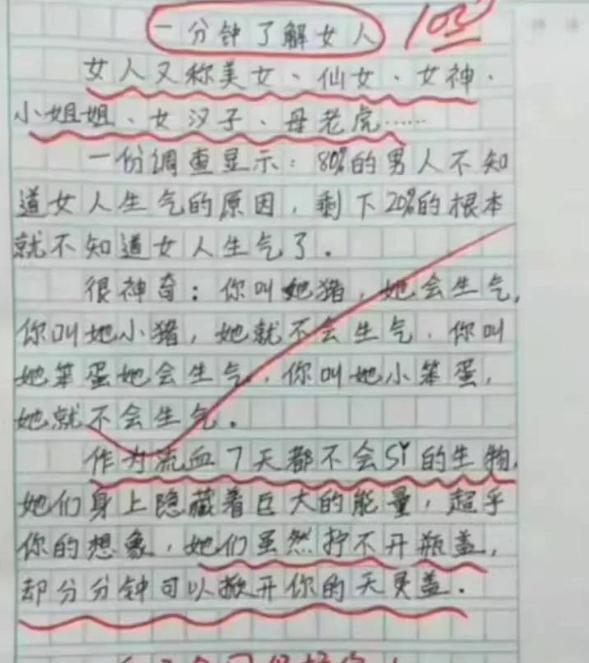 一分钟了解女人
女人又称美女、仙女、女神、
小姐姐、女汉子、母老虎……
一份调查显示：80%的男人不知
道女人生气的原因，剩下20%的根本
就不知道女人生气了．
很神奇：你叫她猪，她会生气，
你叫她小猪，她就不会生气．你叫
她笨蛋她会生气，你叫她小笨蛋，
她就不会生气．
作为流血7天都不会Sǐ的生物，
她们身上隐藏着巨大的能量，超乎
你的想象，她们虽然拧不开瓶盖，
却分分钟可以掀开你的天灵盖．